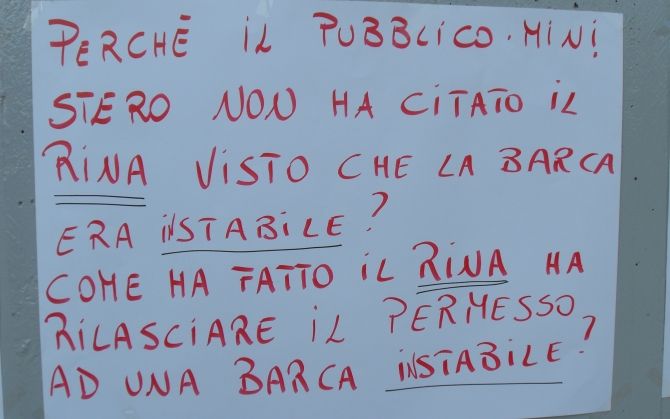 PERCHÈ IL PUBBLICO. MINI
STERO NON HA CITATO IL
RINA VISTO CHE LA BARCA
ERA INSTABILE?
COME HA FATTO IL RINA HA
RILASCIARE IL PERMESSO
AD UNA BARCA INSTABILE?